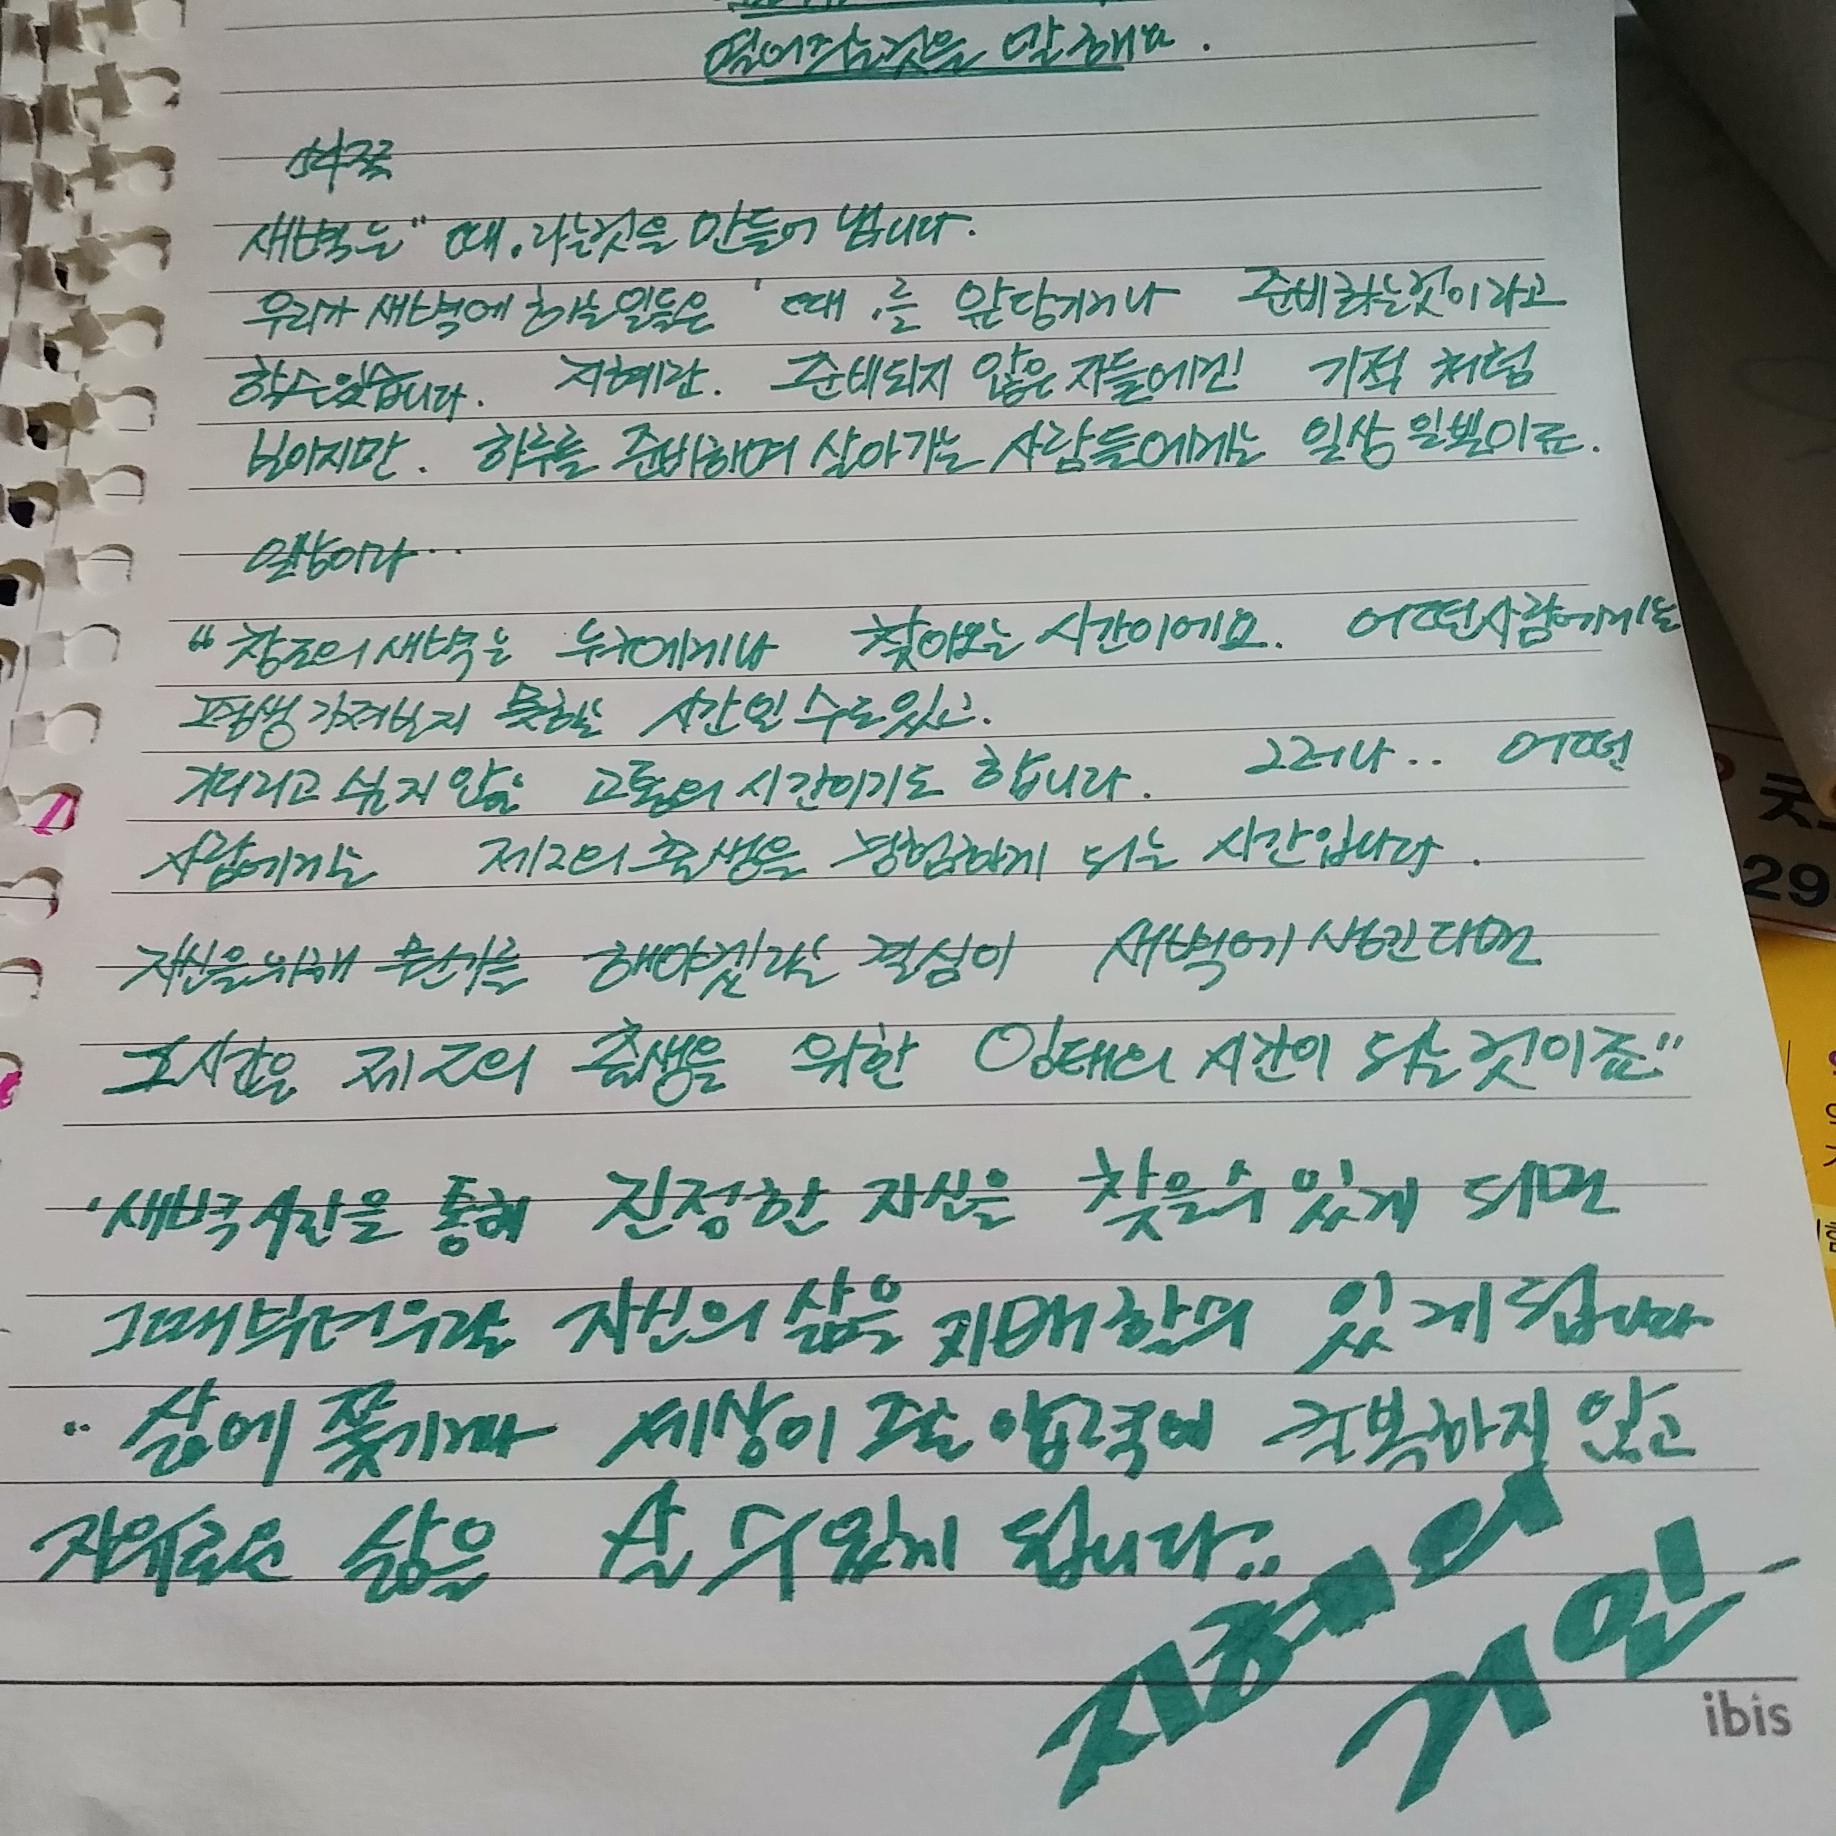 열어주는것을 말해요.
새벽은 "때,라는것을 만들어 냅니다.
우리가 새벽에 하는일들은 '때,를 앞당기거나 준비하는것이라고
할수있습니다. 지혜란. 준비되지 않은 자들에겐! 기적 처럼
보이지만. 하루를 준비하며 살아가는 사람들에게는 일상 일뿐이죠.
일상이라..
"창조의 새벽은 누구에게나 찾아오는 시간이에요. 어떤사람에게는
평생 가져보지 못하는 시간일 수도있고.
기다리고 싶지 않은 고통의 시간이기도 합니다. 그러나.. 어떤
사람에게는 제2의 출생을 경험하게 되는 시간입니다.
자신을위해 무언가를 해야겠다는 결심이 새벽에 생긴다면
그시간은 제2의 출생을 위한 잉태의 시간이 되는것이죠."
'새벽 시간을 통해 진정한 자신을 찾을수 있게 되면
그때부터 자신의 삶을 지배할수 있게됩니다
"삶에 쫓기거나 세상이 주는 압력에 굴복하지 않고
자유로운 삶을 살 수 있게 됩니다..
거인
ibis
29